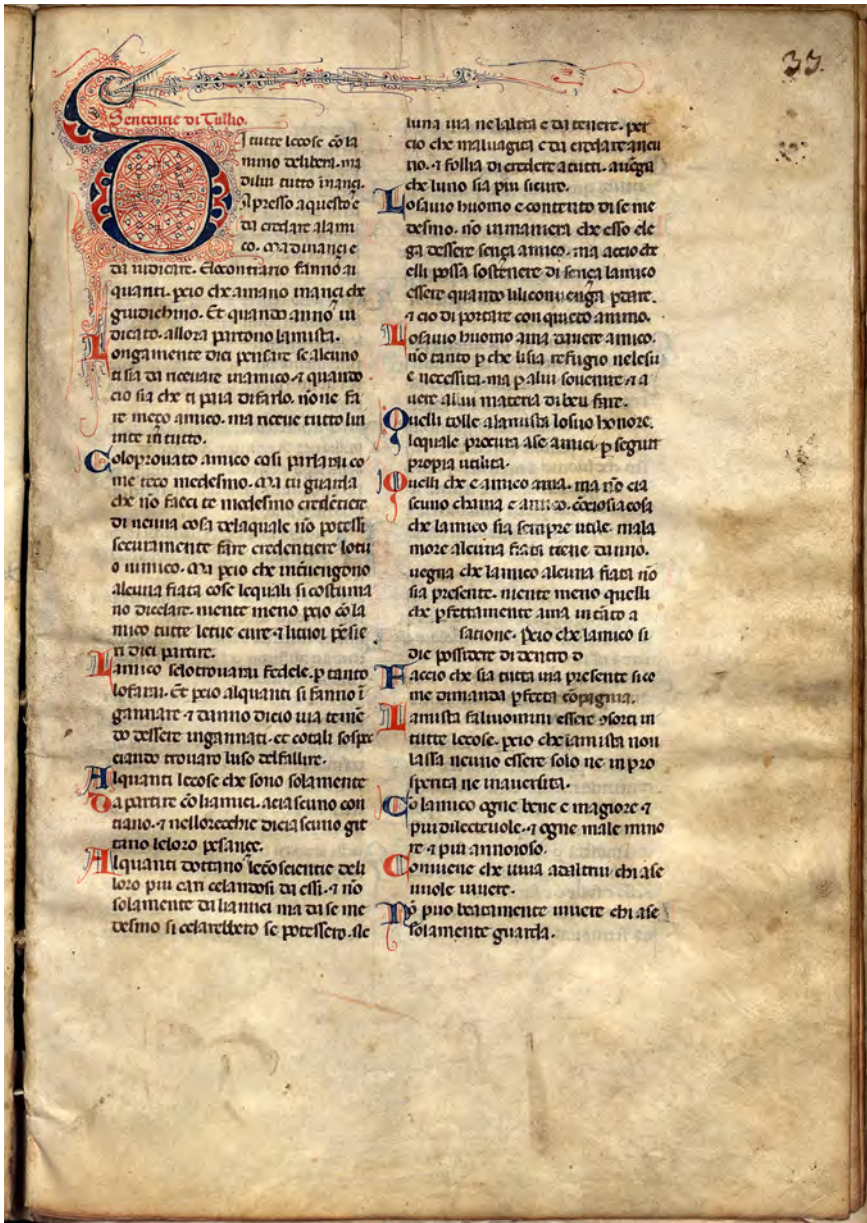 33
Sententie di Tullio.
D
I tutte lecose cõ la
mico delibera. ma
dilui tutto inançi.
Apresso a questo e
da credare alami
co. ma dinançi e
da iudicare. Elcontrario fanno al
quanti. peio che amano inançi che
giudichino. Et quando anno iu
dicato. allora partono lamista.
Longamente dici pensare se alcuno
ti sia da ricevare in amico. ⁊ quando
cio sia che ti paia di farlo. no ne fa
re meço amico. ma riceve tutto lui
inte in tutto.
Coloprouato amico cosi parlarai co
me teco medesmo. Ma tu guarda
che nõ facci te medesmo credẽtiere
di neuna cosa delaquale nõ potessi
securamente fare credentiere lotu
o inimico. Ma peio che interuengono
alcuna fiata cose lequali si costuma
no dicelare. niente meno peio cõ la
mico tutte letue cure. ⁊ lituoi pẽsie
ri dici partire.
Lamico selotrouarai fedele. p tanto
lofarai. Et peio alquanti si fanno ĩ
gannare ⁊ danno dicio uia temẽ
do dessere ingannati. et cotali sospe
ciando trouaro luso delfallire.
Alquanti lecose che sono solamente
da partire cõ liamici. aciascuno con
tiano. ⁊ nellorecchie diciascuno git
tano leloro pesançe.
Alquanti dottano lecõscientie deli
loro piu cari celandosi da essi. ⁊ nõ
solamente da liamici ma da se me
desmo si celarebbero se potessero. ne
luna uia ne laltra e da tenere. per
cio che maluagita e da credare ancu
no. ⁊ follia di credere a tutti. auẽga
che luno sia piu sicuro.
Losauio huomo e contento di se me
desmo. nõ in maniera che esso ele
ga dessere sença amico. ma accio che
elli possa sostenere di sença lamico
essere quando lili conuenga pdare.
⁊ cio di portare con quieto animo.
Losauio huomo ama dauere amico.
nõ tanto p che lisia refugio nelesu
e necessita. ma p alui souenire. ⁊ a
uere alui materia di ben fare.
Quelli tolle alamista losuo honore.
lequale procura ase amici. p seguir
propia utilita.
Quelli che e amico ama. ma nõ cia
scuno chama e amico. cõciosia cosa
che lamico sia sempre utile. mala
more alcuna fiata tiene danno.
uegna che lamico alcuna fiata nõ
sia presente. niente meno quelli
che pfettamente ama in tãto a
satione. Peio che lamico si
die possedere di dentro d
Faccio che sia tutta uia presente sico
me dimanda pfetta cõpagnia.
Lamista fa liuomini essere ꝯsorti in
tutte lecose. peio che lamista non
lassa neuno essere solo ne in pro
sperita ne inauersita.
Cõ lamico ogne bene e magiore ⁊
piu dilecteuole. ⁊ ogne male mino
re ⁊ piu annoioso.
Conuene che uiua adaltrui chi ase
uuole uiuere.
Nõ puo beatamente uiuere chi ase
solamente guarda.